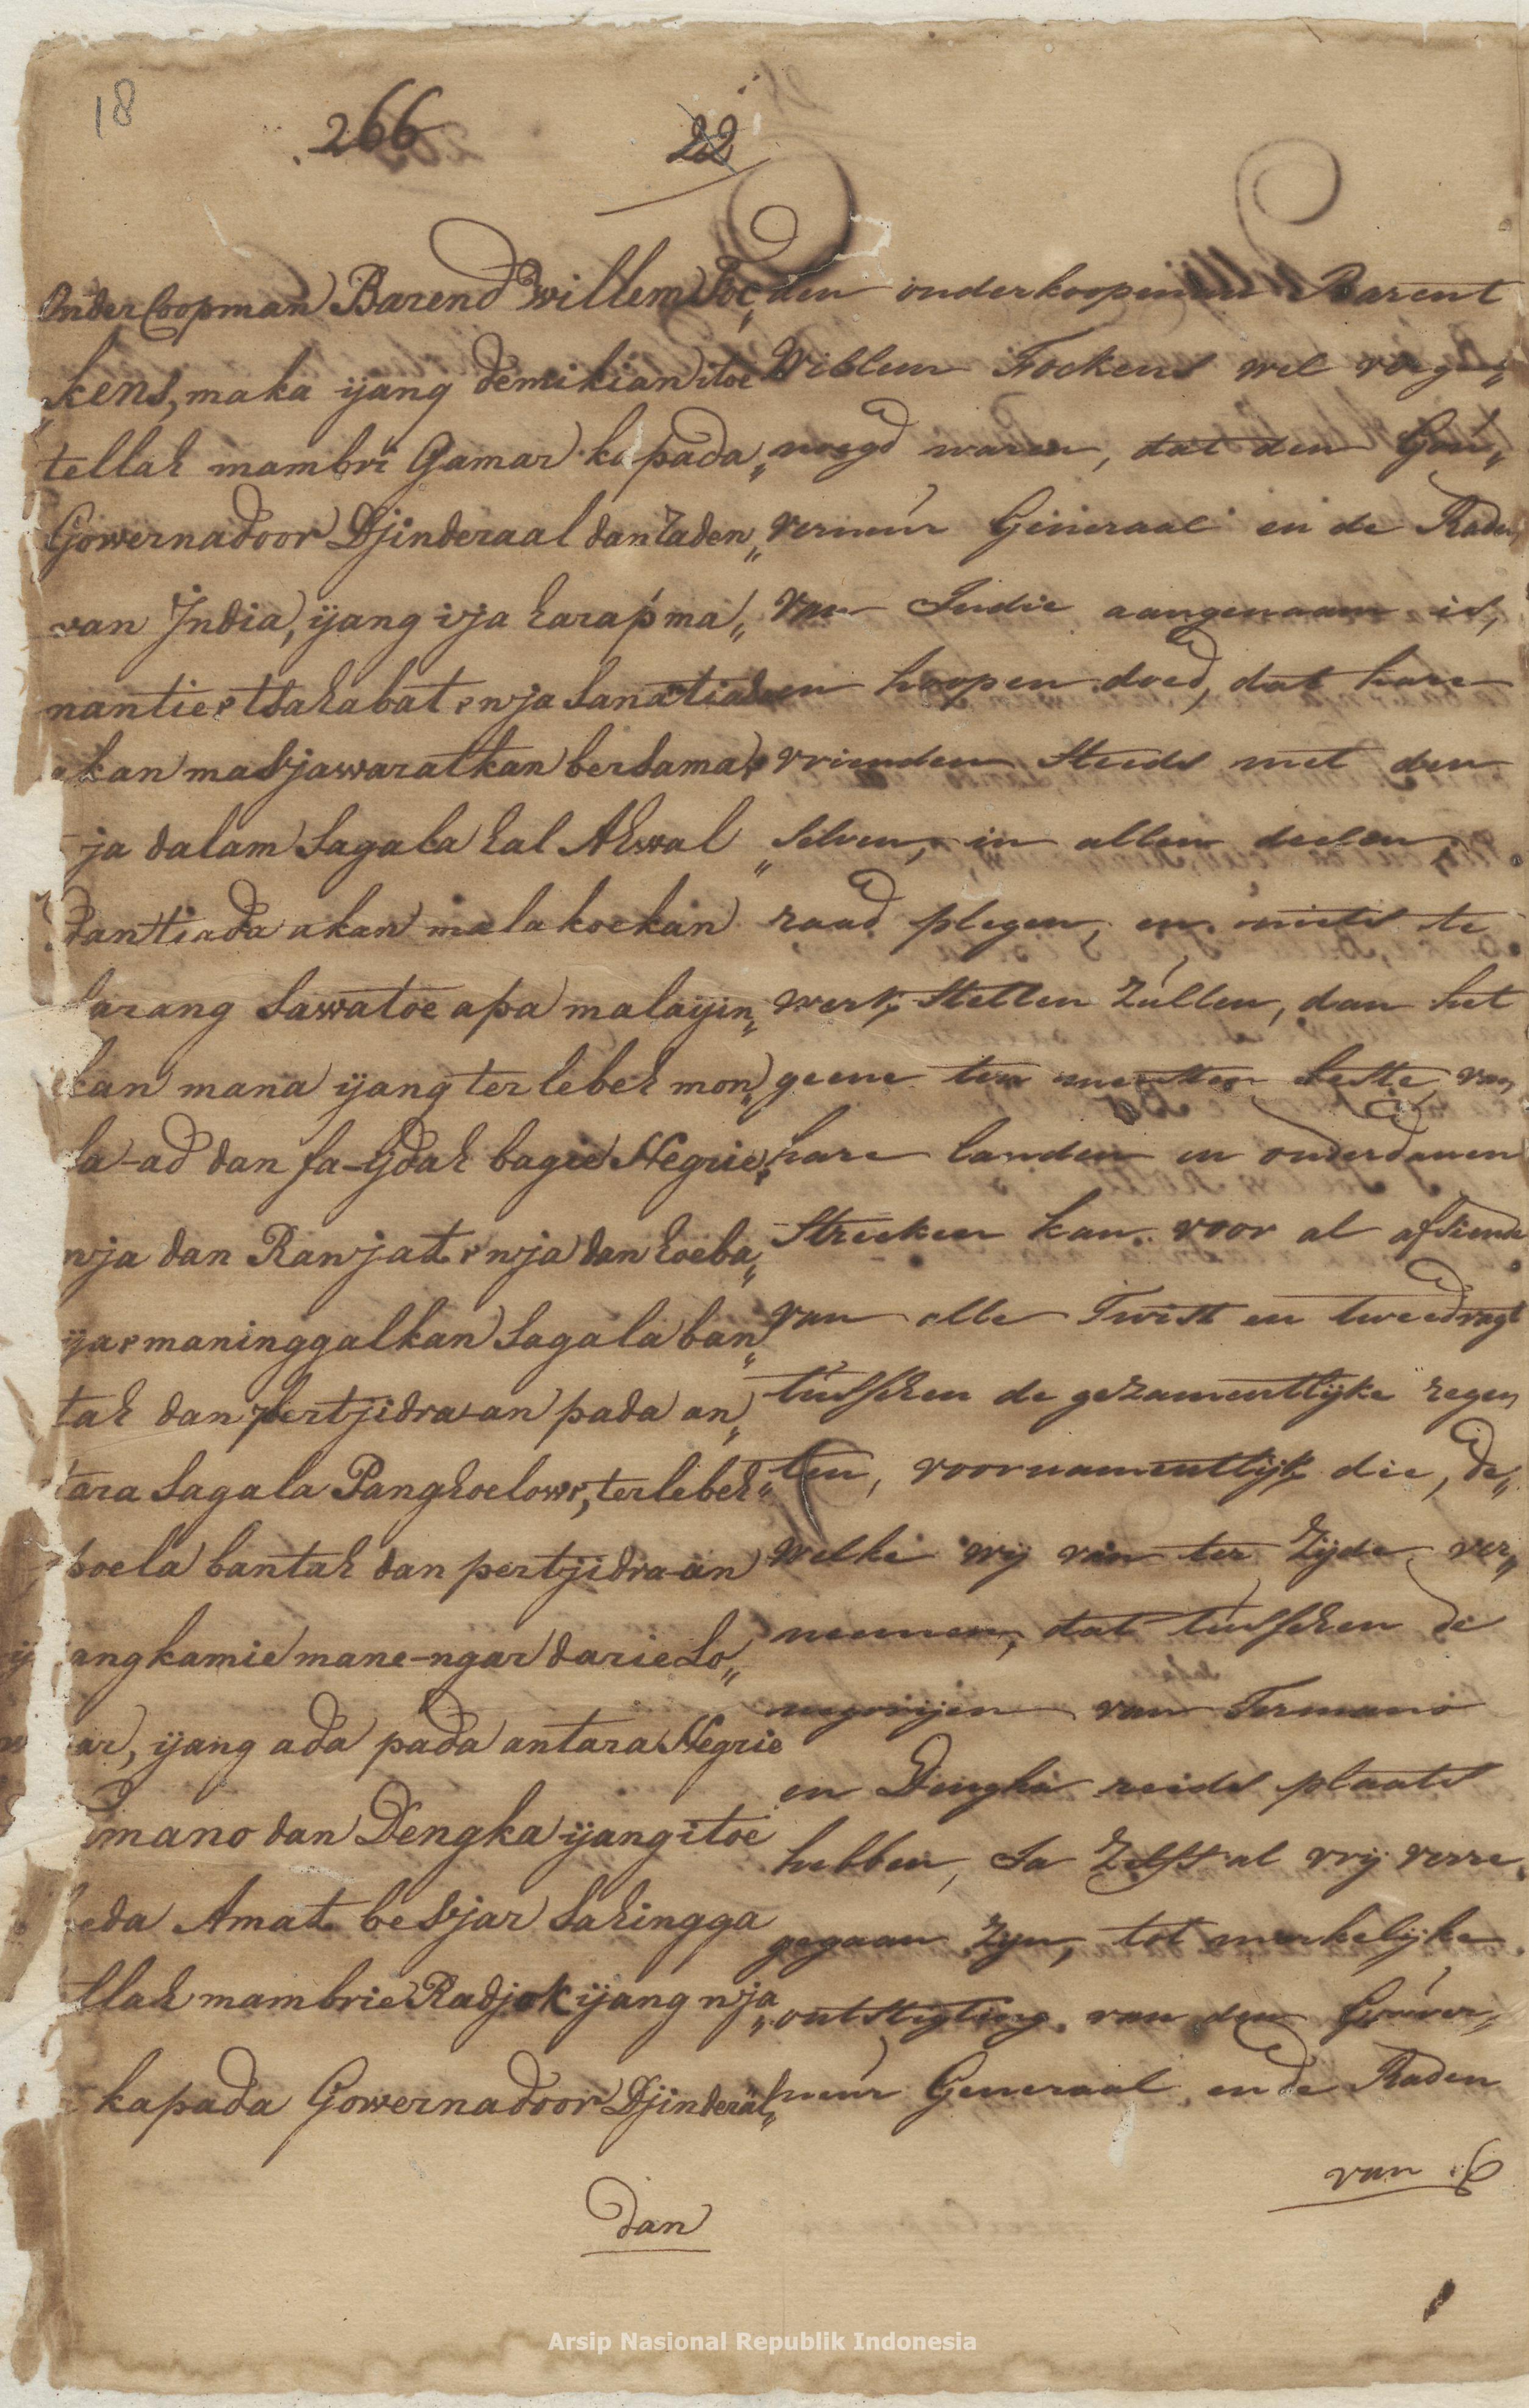 18
266
22
Onder Coopman Barend Willem Foc„
„kens, maka ijang demikian itoe
tellah mambri Gamar kapada„
Gowernadoor Djinderaal dan Raden„
van India, ijang ija harap ma„
nantie2 tsahabat2 nja sanatiada
akan masjawaratkan bersama2
ja dalam sagala hal Ahwal
dan tiada akan malakoekan
barang sawatoe apa malayin„
kan mana ijang terlebeh mon„
fa-ad dan fa-ijdah bagie Negrie2
nja dan Ranjat2 nja dan hoeba„
ija2 maninggalkan sagala ban„
tah dan pertjidra-an pada an„
tara sagala Panghoelow2, terlebeh
poela bantah dan pertjidra-an
ijang kamie mane-ngar darie Lo„
war, ijang ada pada antara Negrie
mano dan Dengka ijang itoe
Amat besjar sahingga
tellah mambrie Radjok ijang nja„
kapada Gowernadoor Djinderal„
dan
den onderkoopman Barent
Willem Fockens wel verge„
„noegd waren, dat den Gou„
verneur Generaal en de Raden
van Indie aangenaam is,
en hoopen doed, dat hare
vrienden steeds met den
„selven, in allen deelen,
raad plegen, en niets te
werk stellen zullen, dan het
geene ten meesten beste van
hare landen en onderdanen
strecken kan. voor al afsiende
van alle Twist en tweedragt
tusschen de gezamentlijke regen„
„ten, voornamentlijk die, de„
welke wij van ter zijde ver„
neemen, dat tusschen de
negorijen van Termano
en Dengka reids plaats
hebben, Ja zelfs al vrij verre
gegaan zijn, tot merkelijke
ontstigting van den Gouver„
„neur Generaal en de Raden
van
Arsip Nasional Republik Indonesia